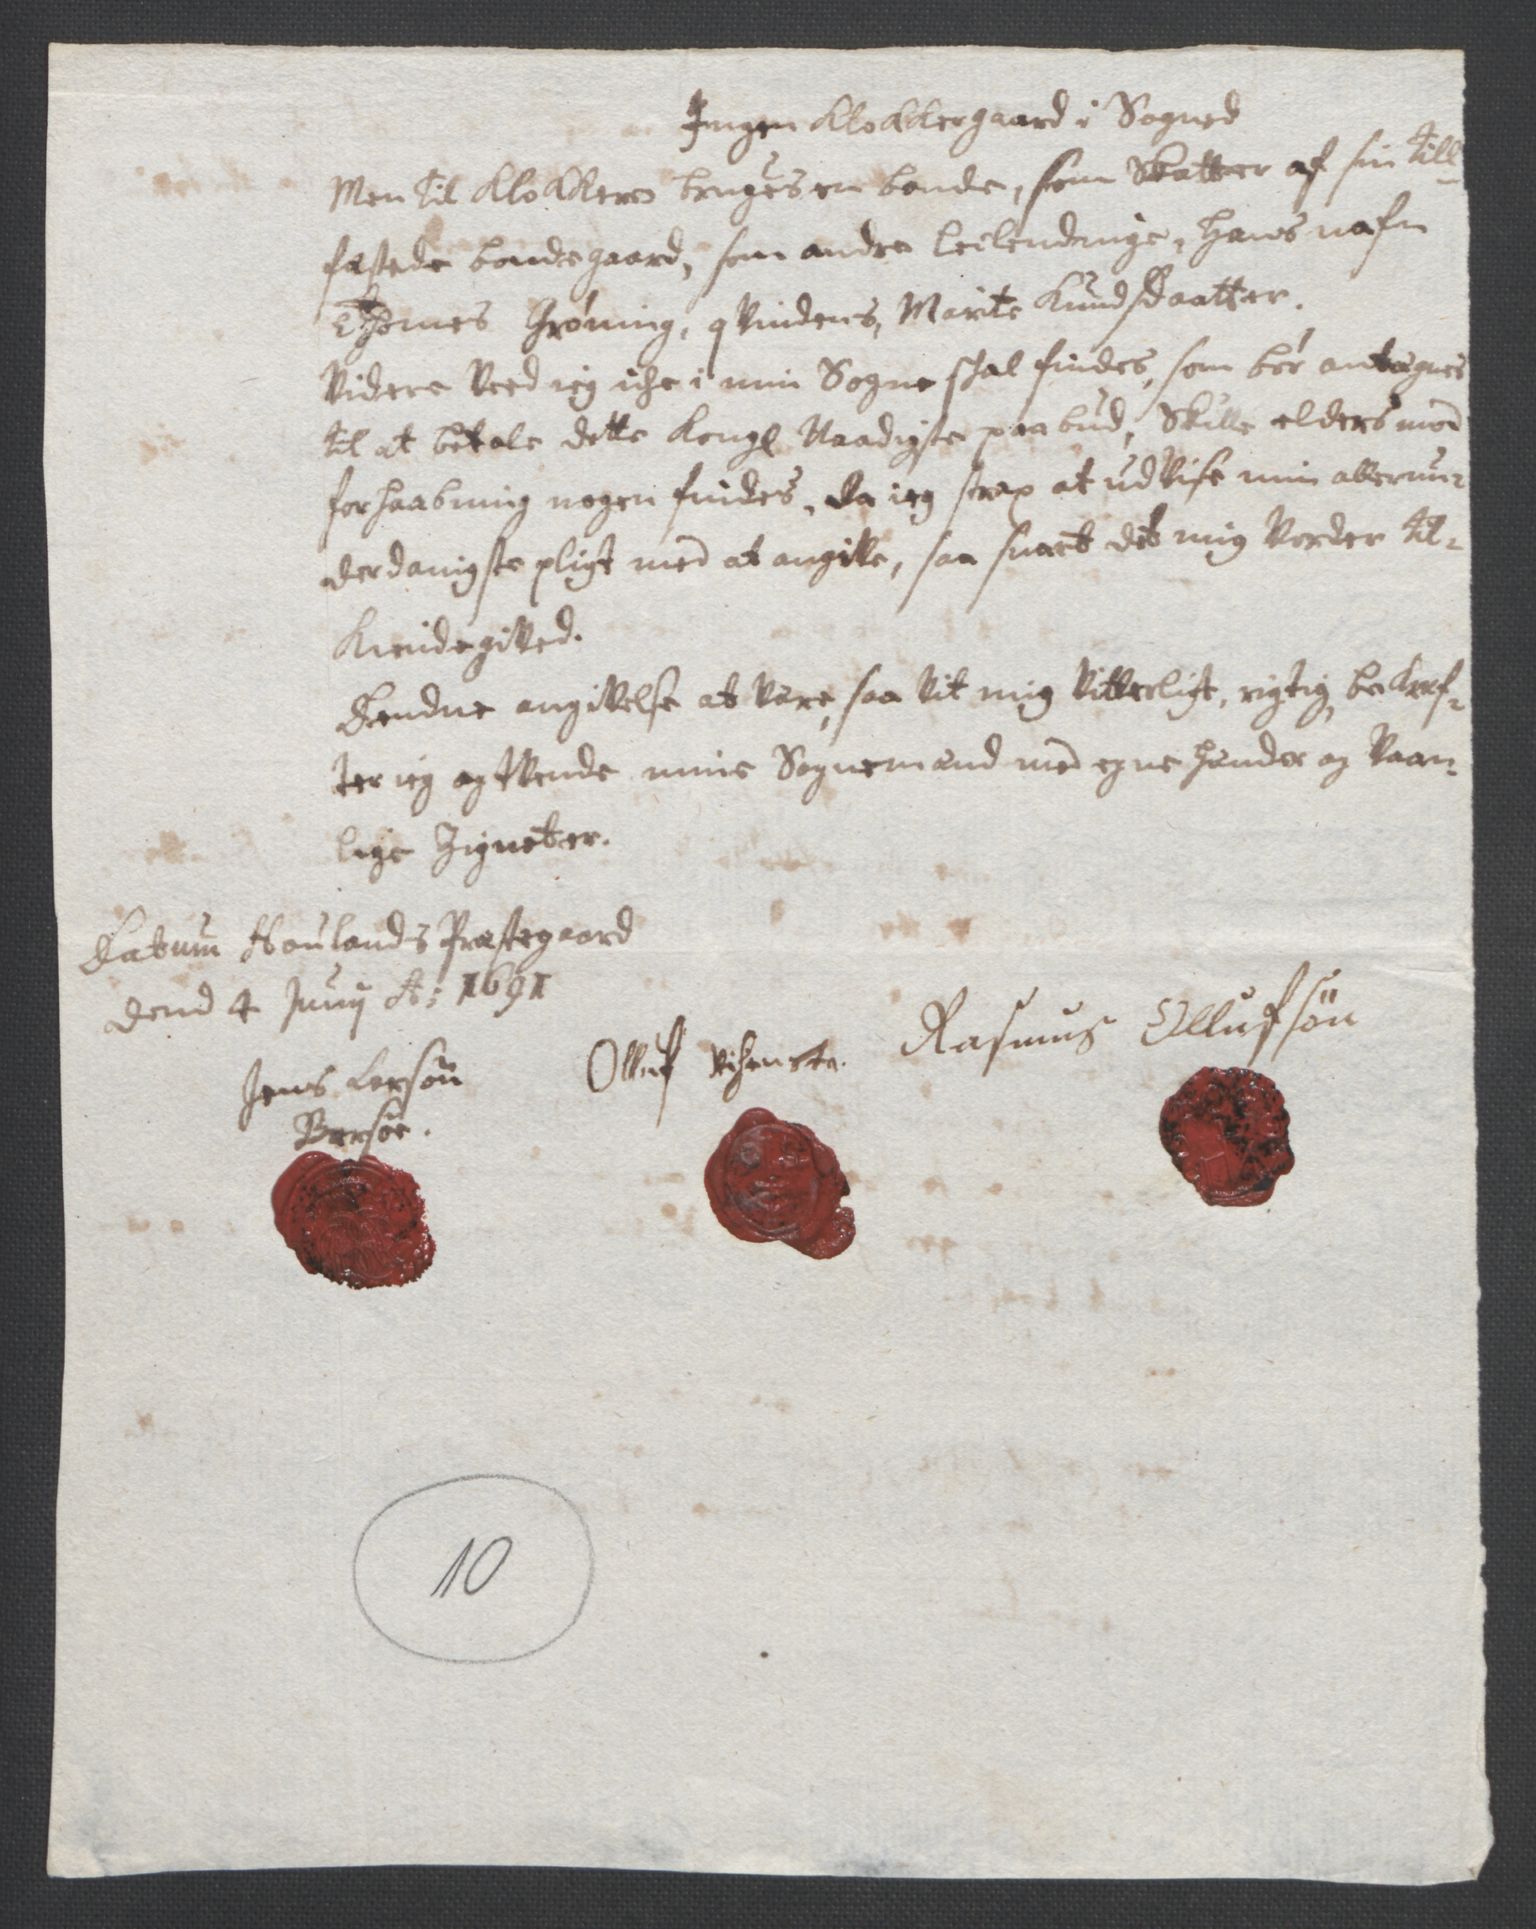 Ingen Klokkergaard i Sogned
Men til Klokkere bruges en bonde, som Skatter af sin till
fæstede bondegaard, som andre leilendinge, hans nafn
Thomes Grøning, qvindens, Marite KnudsDaatter.
Videre Veed ieg iche i min Sogne skal findes, som bør antegnes
til at betale dette Kongl Naadigste paabud, Skulle ellers mod
forhaabning nogen findes, da ieg strax at udVise min allerun-
derdanigste pligt med at angive, saa snart det mig Vorder til-
Kiendegived.
Dendne angivelse at Være, saa vit mig Vitterligt, rigtig, bekref-
ter ieg og tVende mine Sognemænd med egne hænder og Vaan-
lige Zigneter.
Datum Houlands Præstegaard
dend 4 Junij Ao: 1691
Jens Lersøn
Barsøe.
Olluf
Rasmus Ollufsøn
10